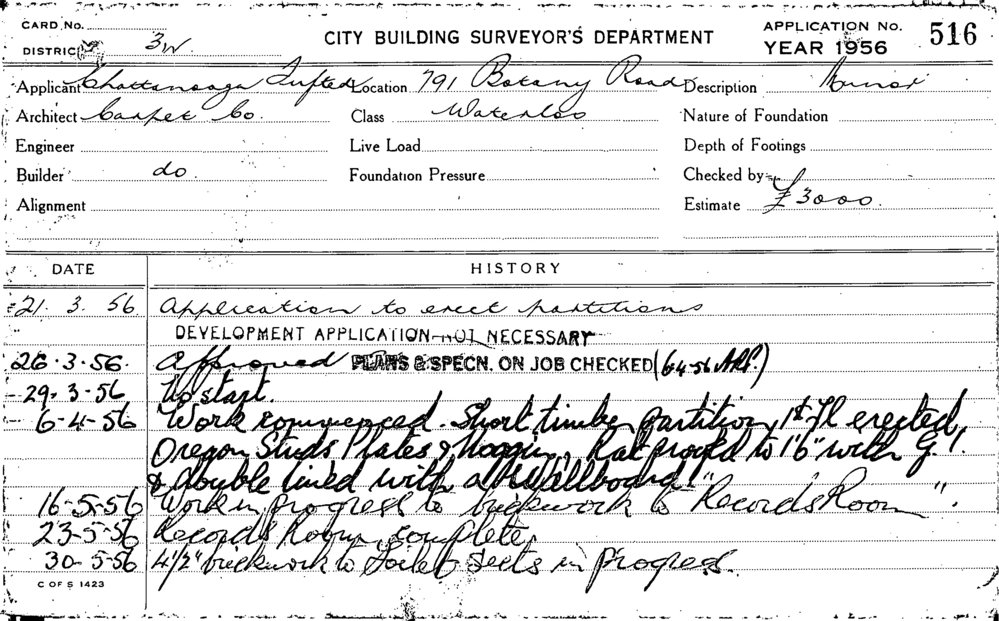 CARD No.
DISTRICT 3W
CITY BUILDING SURVEYOR'S DEPARTMENT
APPLICATION No. 516
YEAR 1956
Applicant Chattanooga Tufted Location 791 Botany Road Description Minor
Architect Carpet Co. Class Waterloo Nature of Foundation
Engineer Live Load Depth of Footings
Builder do Foundation Pressure Checked by
Alignment Estimate £3000.
DATE HISTORY
21. 3. 56 Application to erect partitions
DEVELOPMENT APPLICATION NOT NECESSARY
26.3.56. Approved PLANS & SPECN. ON JOB CHECKED (6-4-56
29.3-56 No start.
6-4-56 Work commenced. Short timber partition, 1st Fl erected,
Oregon Studs Plates & Noggin, Rat proofd to 1'6" with G.I.
& double lined with Wallboard.
16-5-56 Work in progress to brickwork to "Records Room".
23-5-56 Records Room complete.
30-5-56 4½" brickwork to Toilet Sects in progress.
C OF S 1423